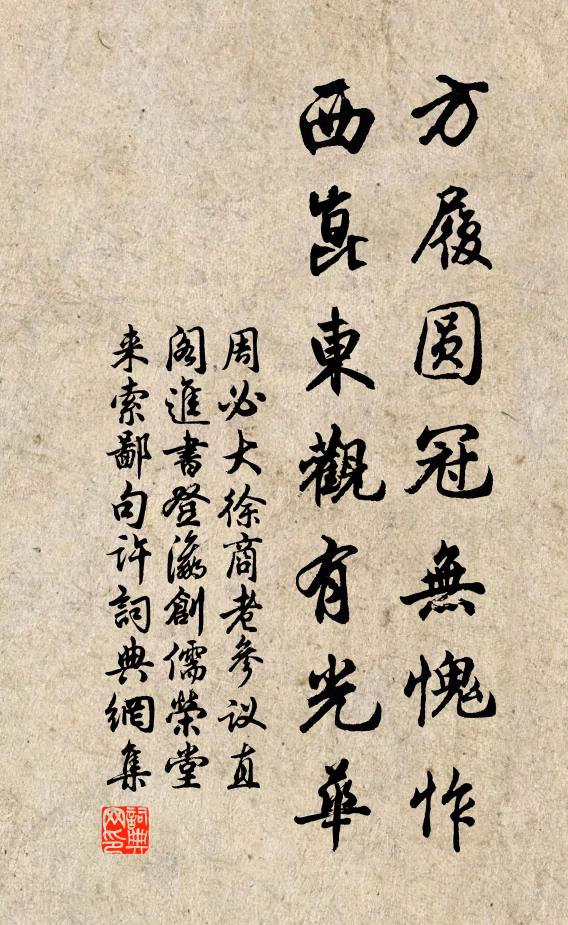 方履圓冠無愧怍
西崑東觀有光華
周必大徐商老參议直
阁進書登瀛創儒榮堂
来索鄙句许詞典網集
詞典网印